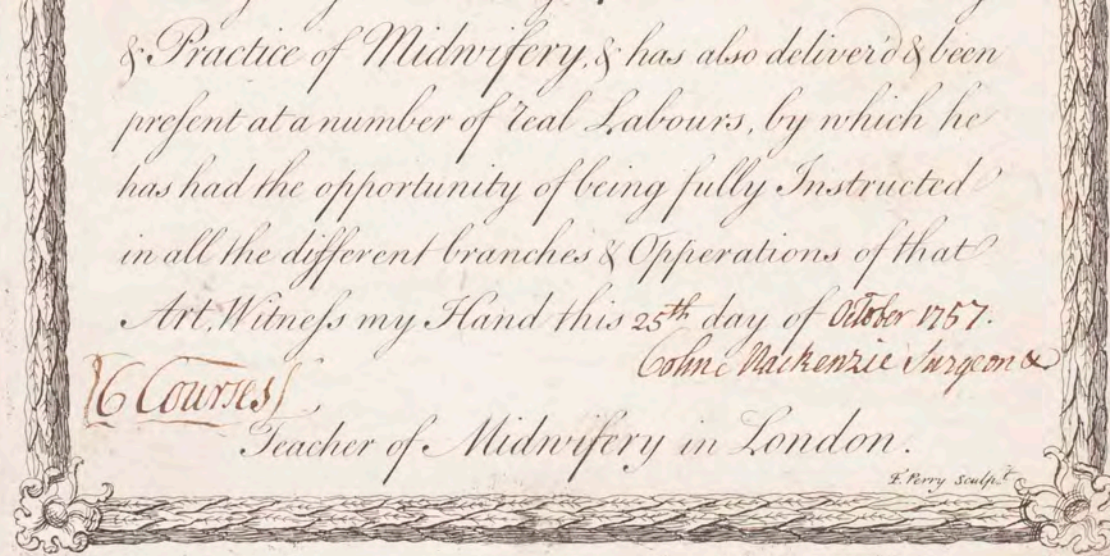 & Practice of Midwifery, & has also deliver'd & been
preſent at a number of real Labours, by which he
has had the opportunity of being fully Instructed
in all the different branches & Opperations of that
Art. Witneſs my Hand this 25th day of October 1757.
Colin Mackenzie Surgeon &
[6 Courses]
Teacher of Midwifery in London.
F. Perry Sculpt